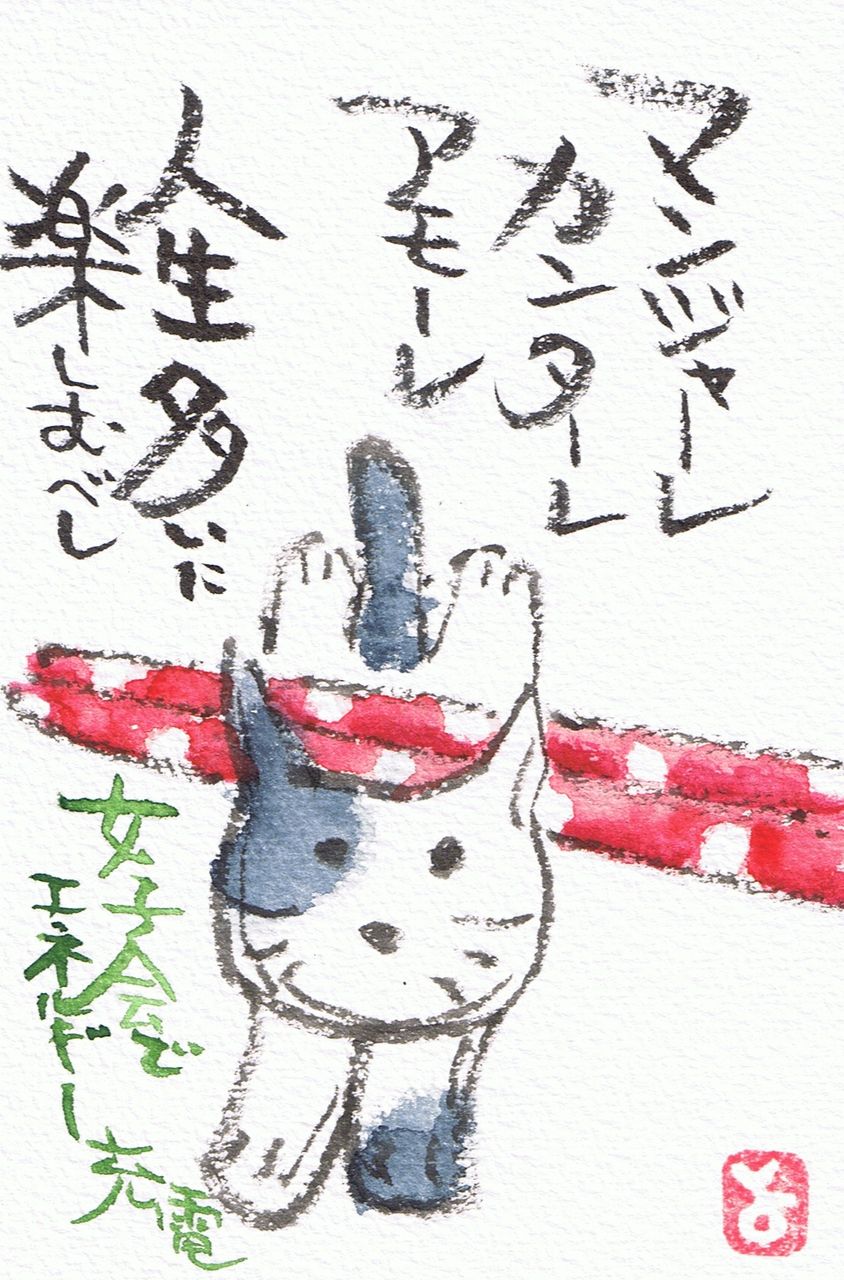 マンジャーレ
カンターレ
アモーレ
人生多いに
楽しむべし
女子会で
エネルギー
充電
よ